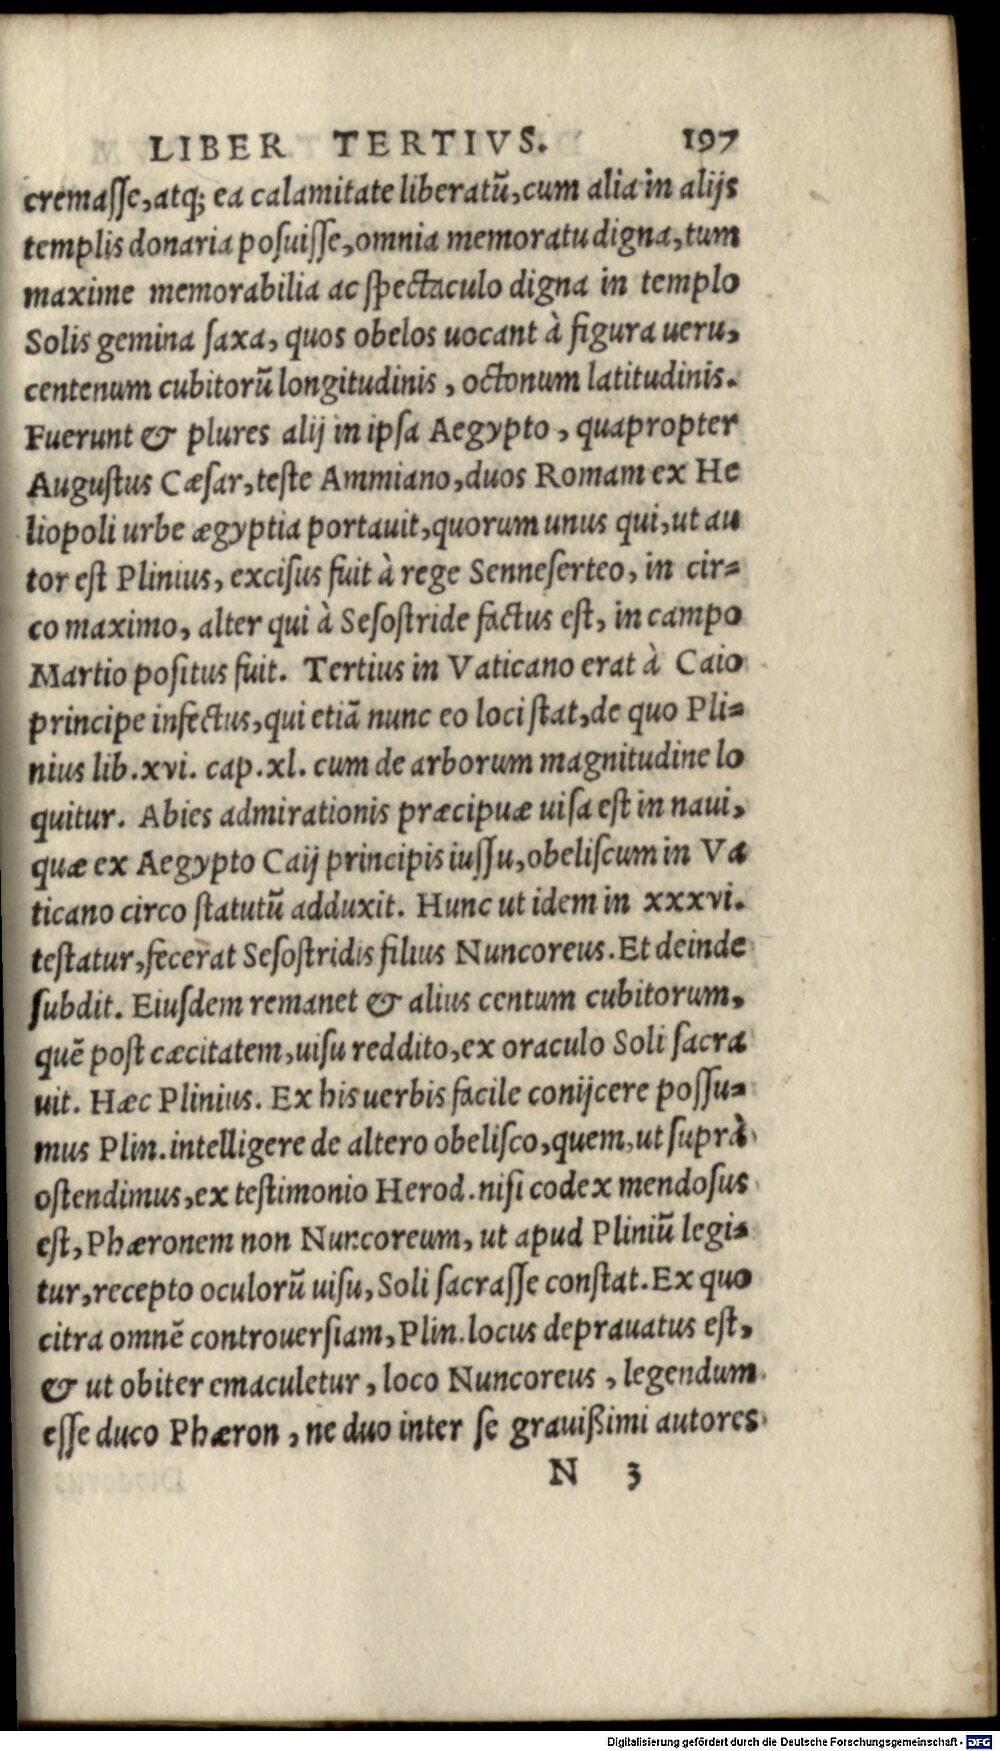 LIBER TERTIVS. 197
cremasse, atq; ea calamitate liberatũ, cum alia in alijs
templis donaria posuisse, omnia memoratu digna, tum
maxime memorabilia ac spectaculo digna in templo
Solis gemina saxa, quos obelos uocant à figura ueru,
centenum cubitorũ longitudinis, octonum latitudinis.
Fuerunt & plures alij in ipsa Aegypto, quapropter
Augustus Cæsar, teste Ammiano, duos Romam ex He
liopoli urbe ægyptia portauit, quorum unus qui, ut au
tor est Plinius, excisus fuit à rege Senneserteo, in cir=
co maximo, alter qui à Sesostride factus est, in campo
Martio positus fuit. Tertius in Vaticano erat à Caio
principe infectus, qui etiã nunc eo loci stat, de quo Pli=
nius lib. xvi. cap. xl. cum de arborum magnitudine lo
quitur. Abies admirationis præcipuæ uisa est in naui,
quæ ex Aegypto Caij principis iussu, obeliscum in Va
ticano circo statutũ adduxit. Hunc ut idem in xxxvi.
testatur, fecerat Sesostridis filius Nuncoreus. Et deinde
subdit. Eiusdem remanet & alius centum cubitorum,
quẽ post cæcitatem, uisu reddito, ex oraculo Soli sacra
uit. Hæc Plinius. Ex his uerbis facile conijcere possu=
mus Plin. intelligere de altero obelisco, quem, ut suprà
ostendimus, ex testimonio Herod. nisi codex mendosus
est, Phæronem non Nuncoreum, ut apud Pliniũ legi=
tur, recepto oculorũ uisu, Soli sacrasse constat. Ex quo
citra omnẽ controuersiam, Plin. locus deprauatus est,
& ut obiter emaculetur, loco Nuncoreus, legendum
esse duco Phæron, ne duo inter se grauißimi autores
N 3
Digitalisierung gefördert durch die Deutsche Forschungsgemeinschaft - DFG